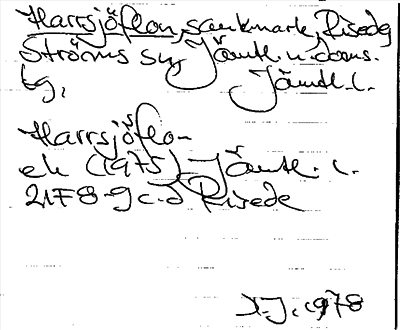 Harrsjöflon, sankmark, Risede
Ströms sn, Jämtl. n. doms.
tg, Jämtl. l.
Harrsjöflon
ek (1975) Jämtl. l.
21F 8-9 c-d Risede
1978